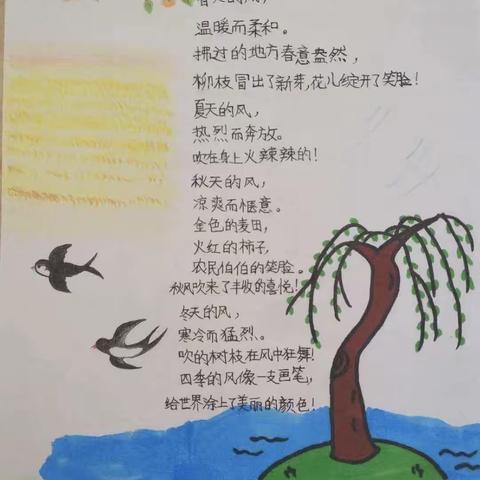 春天的风，
温暖而柔和。
拂过的地方春意盎然，
柳枝冒出了新芽，花儿绽开了笑脸！
夏天的风，
热烈而奔放。
吹在身上火辣辣的！
秋天的风，
凉爽而惬意。
金色的麦田，
火红的柿子，
农民伯伯的笑脸。
秋风吹来了丰收的喜悦！
冬天的风，
寒冷而猛烈。
吹的树枝在风中狂舞！
四季的风像一支画笔，
给世界涂上了美丽的颜色！